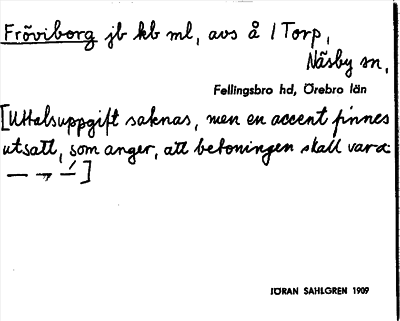 Fröviborg jb kb ml, avs å 1 Torp,
Näsby sn,
Fellingsbro hd, Örebro län
[Uttalsuppgift saknas, men en accent finnes
utsatt, som anger, att betoningen skall vara:
— → –́ ]
JÖRAN SAHLGREN 1909